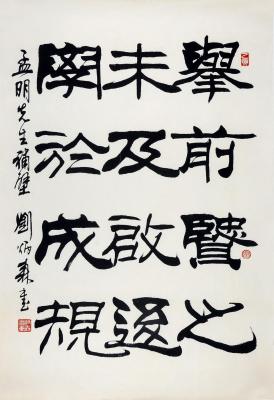 舉前賢之
未及啟後
學於成規
孟明先生補壁 劉炳森書